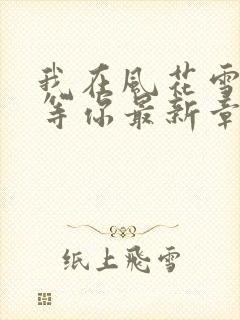 我在風花雪
等你最新章
纸上飛雪